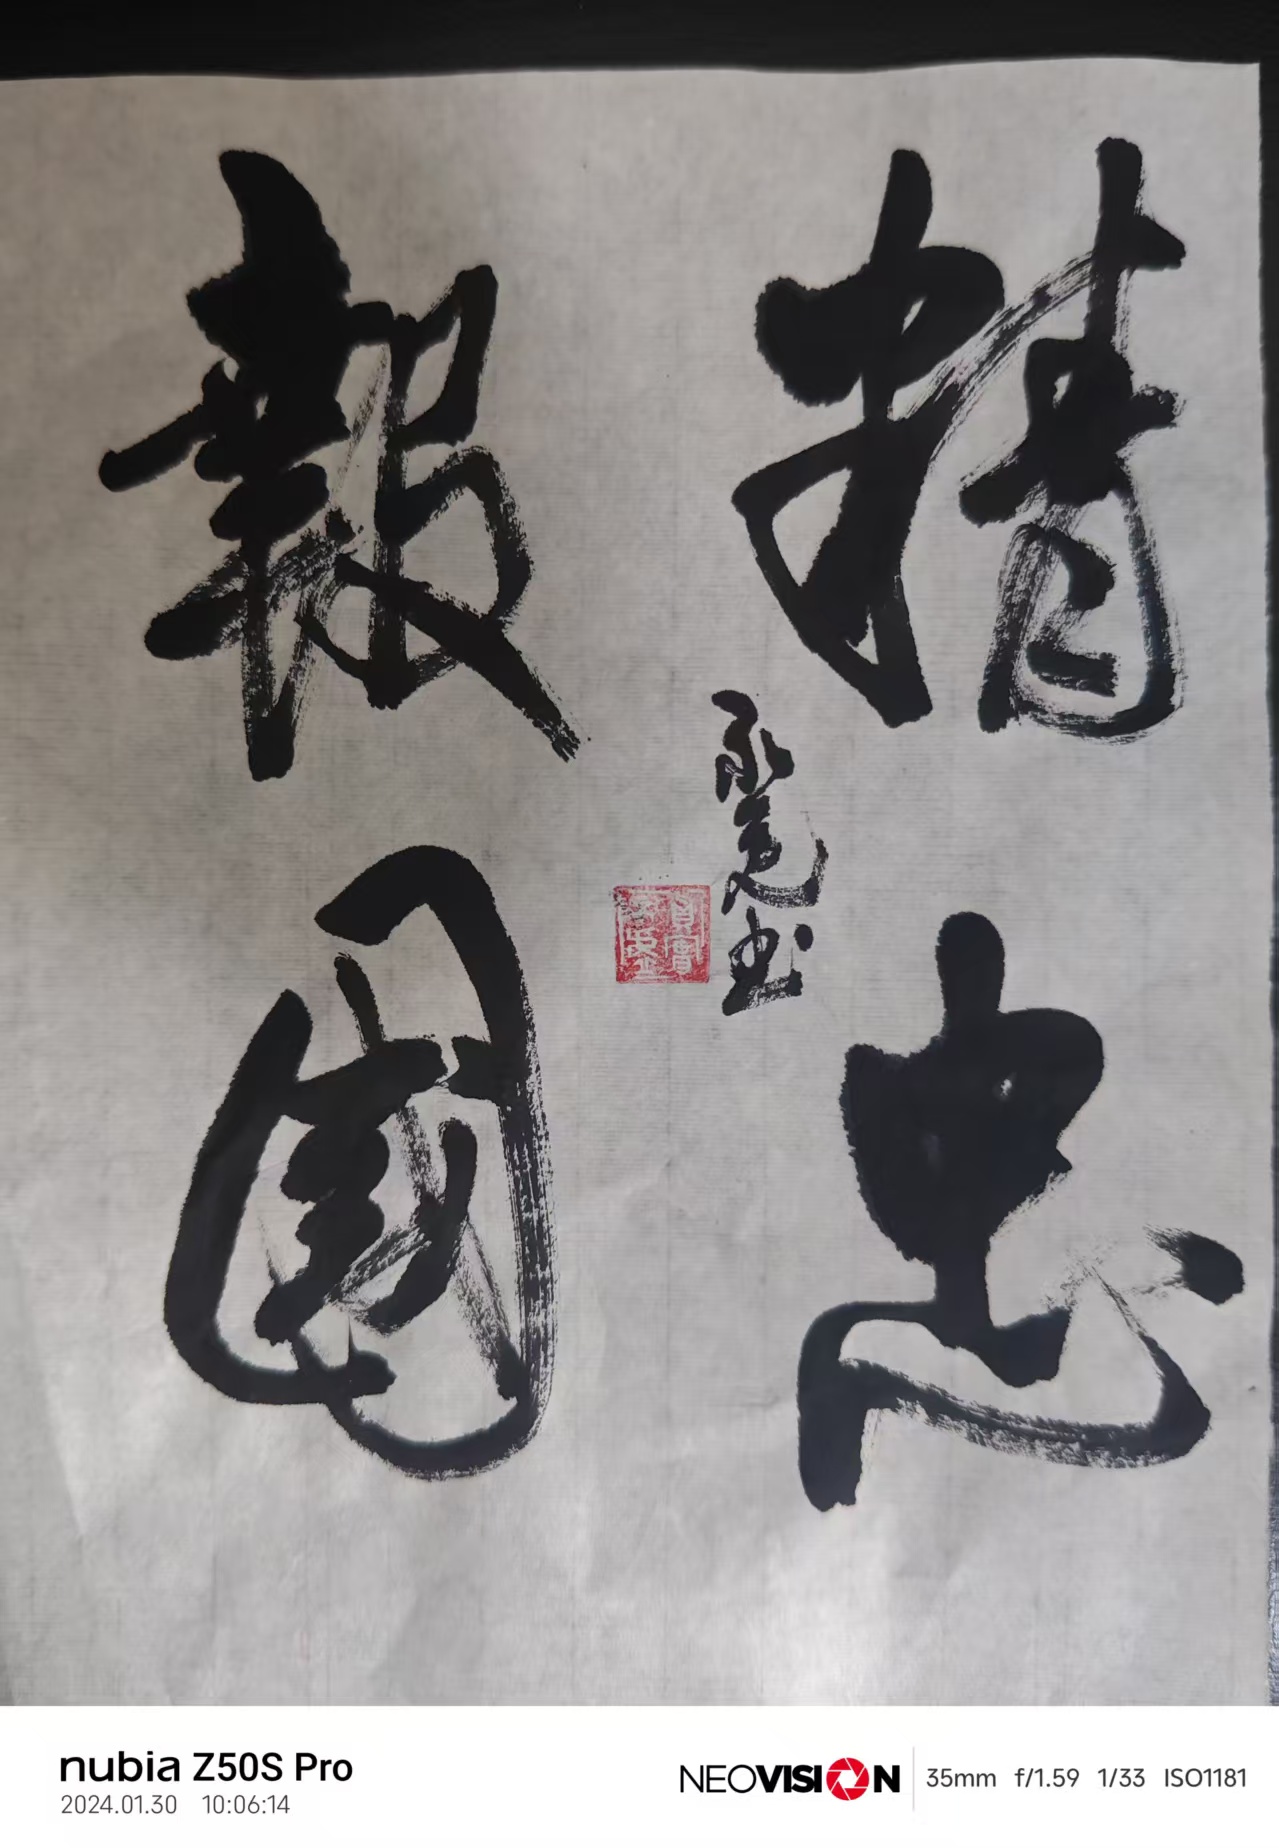 精忠
報國
nubia Z50S Pro
2024.01.30 10:06:14
NEOVISION
35mm f/1.59 1/33 ISO1181